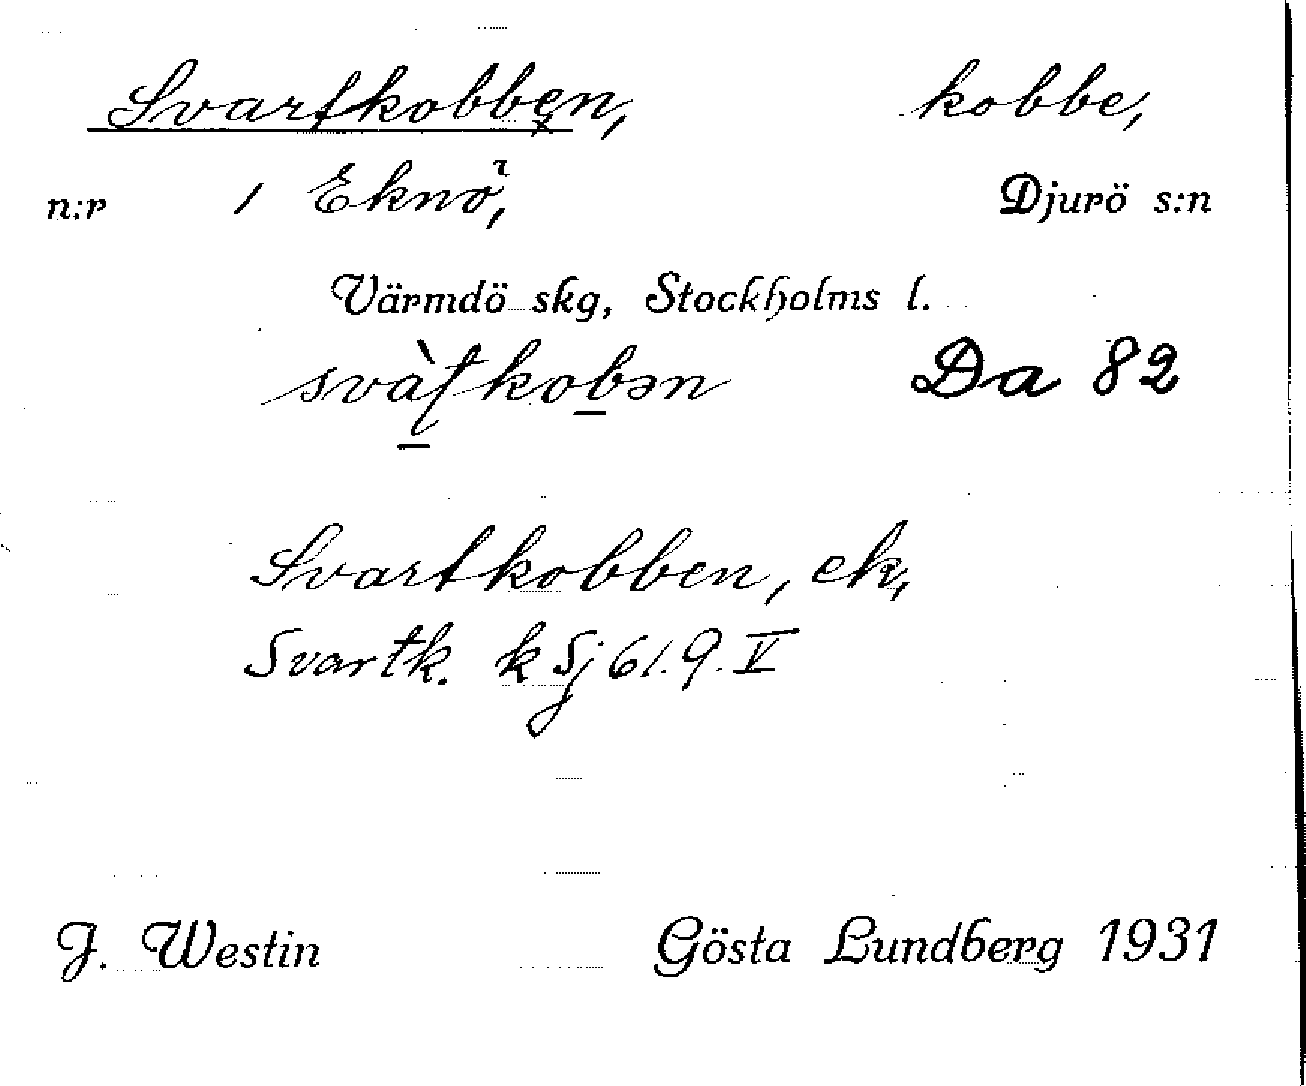 Svartkobben, kobbe,
n:r 1 Eknö, Djurö s:n
Värmdö skg, Stockholms l.
Da 82
Svartkobben, ek,
Svartk. k Sj 61.9.V
J. Westin Gösta Lundberg 1931